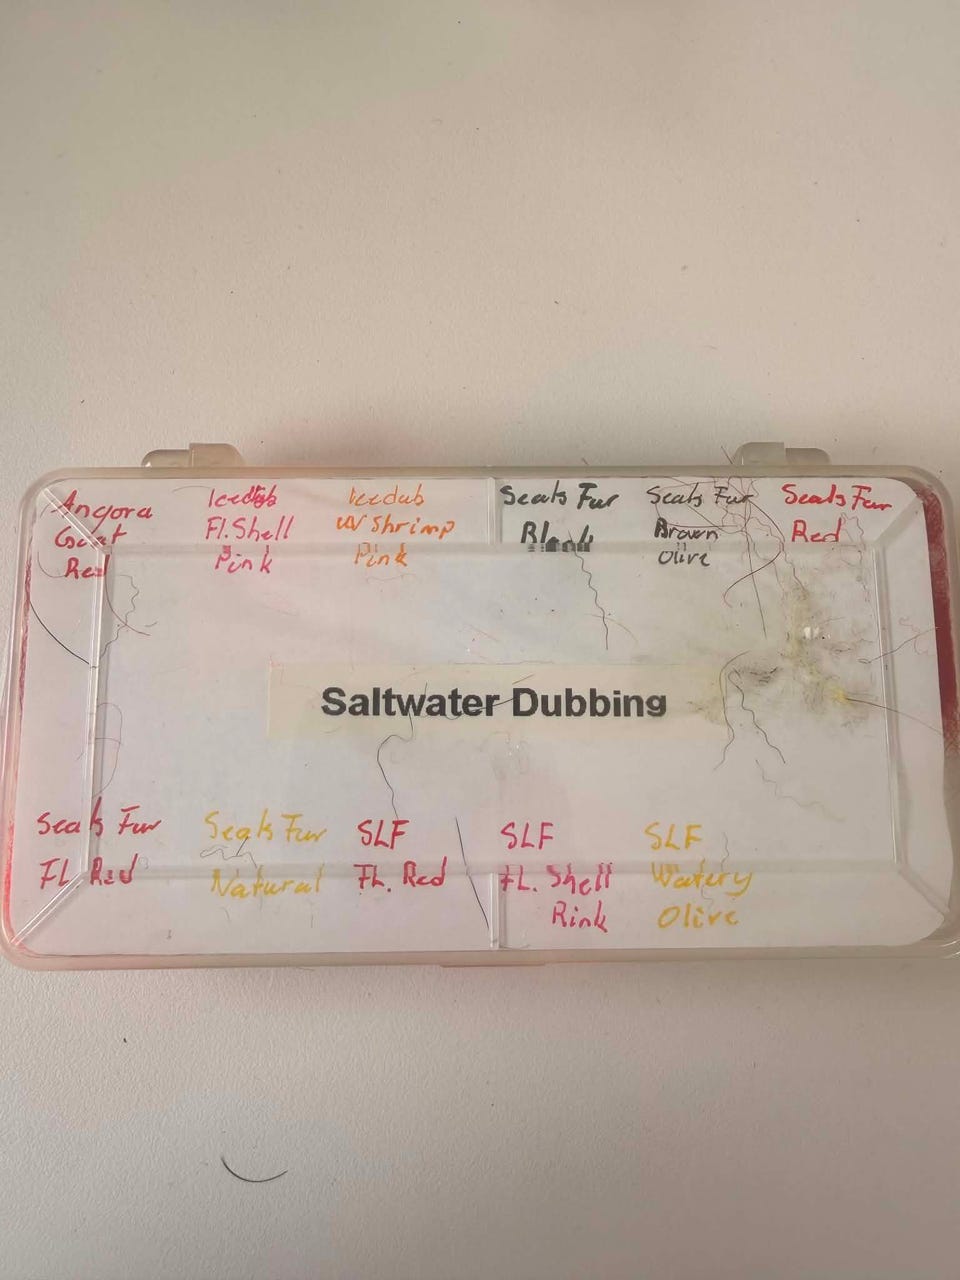 Angora
Goat
Red
Icedub
Fl. Shell
Pink
Icedub
UV Shrimp
Pink
Seals Fur
Black
Seals Fur
Brown
Olive
Seals Fur
Red
Saltwater Dubbing
Seals Fur
FL Red
Seals Fur
Natural
SLF
FL. Red
SLF
FL. Shell
Pink
SLF
Watery
Olive